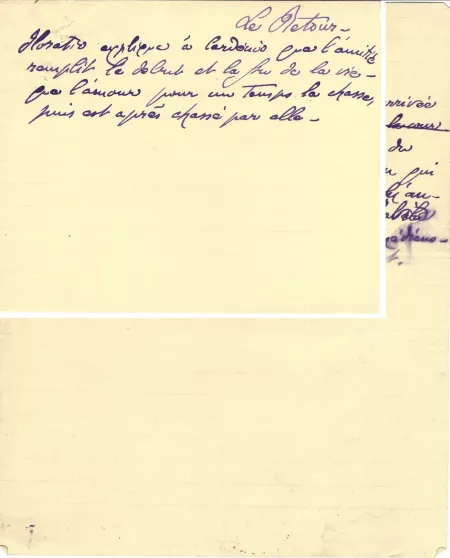 Le Retour –
Horatio explique à Cardenio que l'amitié
remplit le début et la fin de la vie –
que l'amour pour un temps la chasse,
puis est après chassé par elle –
arrivée
la cour
du
qui